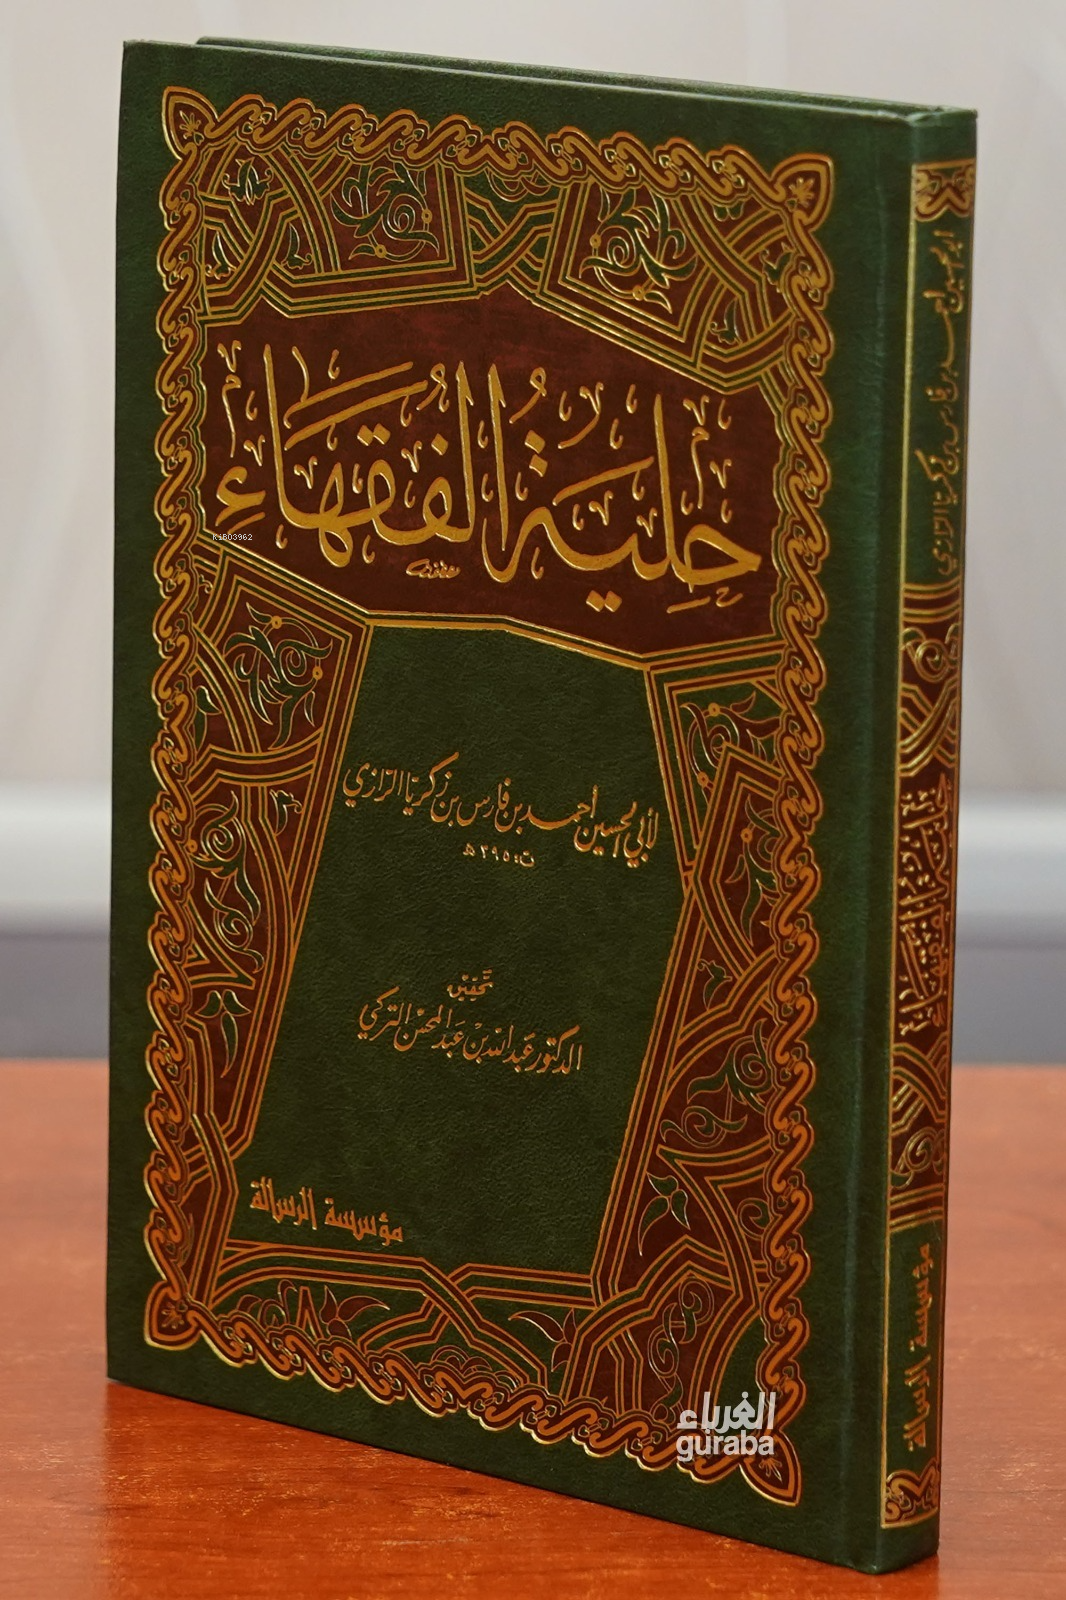 حِلْيَةُ الفُقَهَاءِ
KİB03962
لأبي الحسين أحمد بن فارس بن زكريا الرازي
ت: ٣٩٥ هـ
تحقيق
الدكتور عبد الله بن عبد المحسن التركي
مؤسسة الرسالة
أبو الحسين أحمد بن فارس بن زكريا الرازي
حلية الفقهاء
مؤسسة الرسالة
الغرباء
guraba